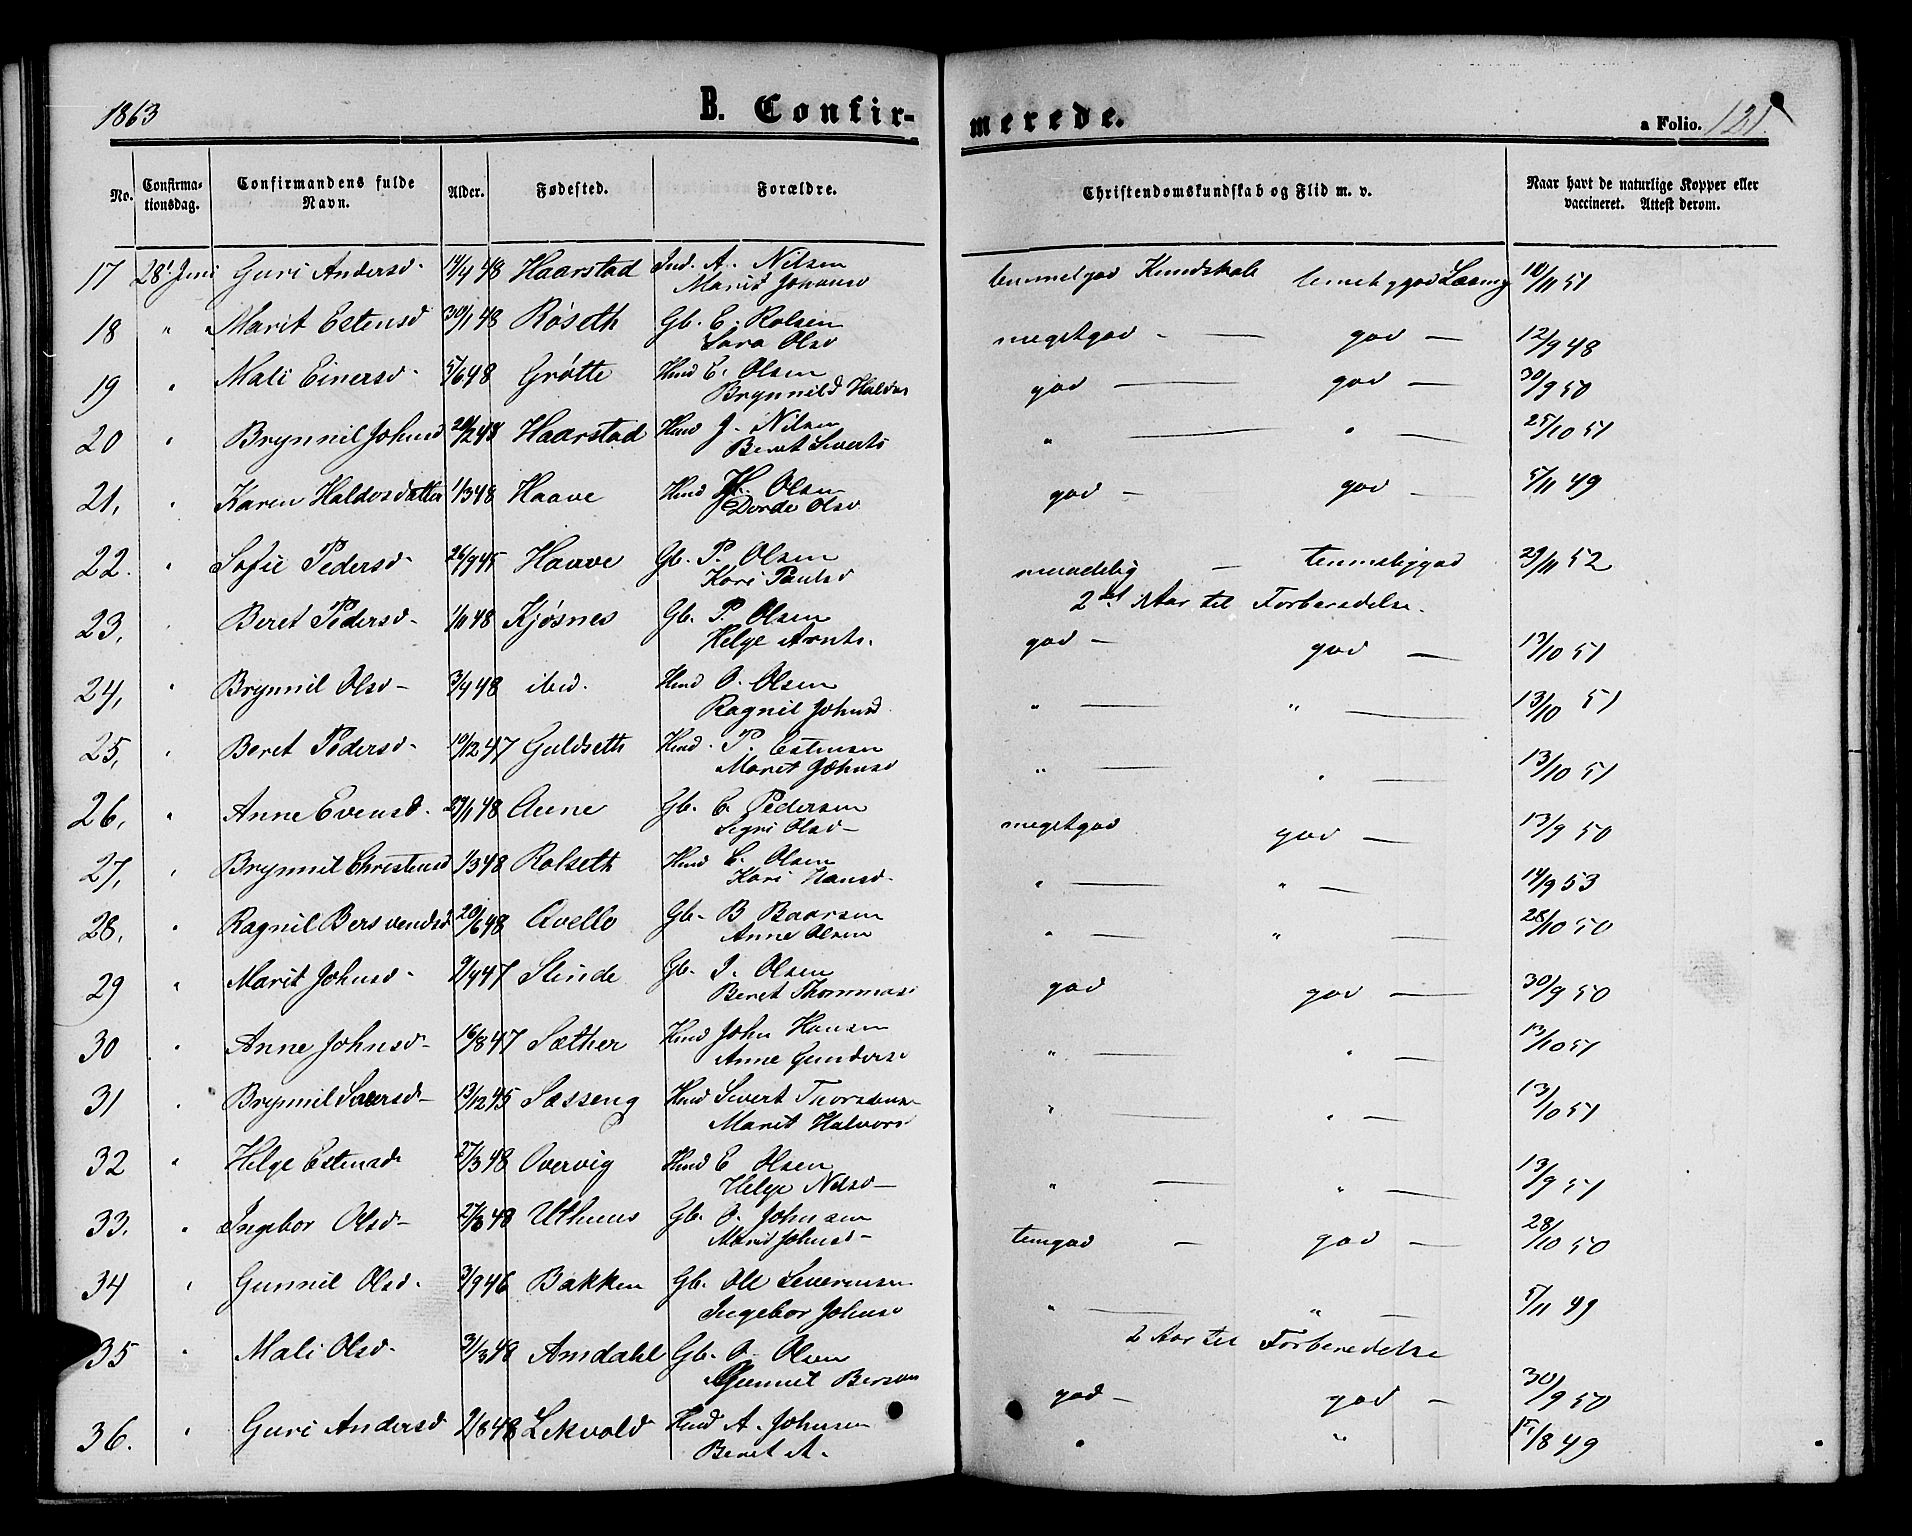 1863
B. Confir-
merede.
a Folio. 121
No.
Confirma-
tionsdag.
Confirmandens fulde
Navn.
Alder.
Fødested.
Forældre.
Christendomskundskab og Flid m. v.
Naar havt de naturlige Kopper eller
vaccineret. Attest derom.
17 28' Juni Guri Andersd. 14/4 48 Haarstad Ind. A. Nilsen temmelgod Kundskab Læsning 10/11 51
Marit
18 " Marit Estensd 30/1 48 Røseth Gb. E. Rolsen megetgod - — god — 12/9 48
Sara Olsd
19 " Mali Einersd. 5/6 48 Grøtte Hmd E. Olsen god — god — 30/9 50
Brynnild Haldos
20 " Brynnil Johnsd 48 Haarstad Hmd J. Nilsen " — " — 25/10 51
Beret Siverts
21, " Karen Haldosdatter 1/3 48 Haave Hmd H. Olsen god — god — 5/11 49
Dorde Olsd
22. " Sofie Pedersd. 26/9 45 Haave Gb. P. Olsen maadelig — temmeliggod 29/11 52
Kari Paulsd
2det Aar til Forberedelse.
23, Beret Pedersd. 1/11 48 Kjøsnes Gb. P. Olsen god — god — 13/10 51
Helge Arnts.
24, " Brynnil Olsd — 3/4 48 ibid. Hmd O. Olsen " — " — 13/10 51
Ragnil Johnsd.
25, " Beret Pedersd. 10/12 47 Guldseth Hmd. P. Estensen " — " — 13/10 51
Marit Johnsd
26, " Anne Evensd. 48 Aune Gb. E. Pedersen megetgod god — 13/9 50
Sigri Olsd —
27, " Brynnil Christensd 1/3 48 Rolseth Hmd C. Olsen " — " — 14/9 53
Kari Hansd.
28, " Ragnil Bersvendsd 20/6 48 Avello Gb. B Baarsen " — " — 28/10 50
Anne Olsen
29 " Marit Johnsd. 9/4 47 Stinde Gb. J. Olsen god god — 30/9 50
Beret Thommas
30 " Anne Johnsd. 16/8 47 Sæther Hmd John Hansen " — " — 13/10 51
Anne Gundersd
31 " Brynnil 13/12 45 Sæsseng Hmd Sivert " — " — 13/10 51
Marit Halvors
32 " Helge Estensd. 27/3 48 Overvig Hmd E Olsen " — " — 13/9 51
Helge Nilsd —
33. " Ingebor Olsd. 27/3 48 Uthuus Gb. O. Johnsen temgod — god — 28/10 50
Marit Johnsd —
34 " Gunnil Olsd. 3/9 46 Bakken Gb. Ole Severinsen " — " — 5/11 49
Ingebor Johnsd
2 Aar til Forberedelse
35 " Mali Olsd. 31/3 48 Amdahl Gb. O. Olsen god — god — 30/9 50
Gunnil
36. " Guri Andersd 9/8 48 Lekvold Hmd A. Johnsen " " 15/8 49
Beret A.